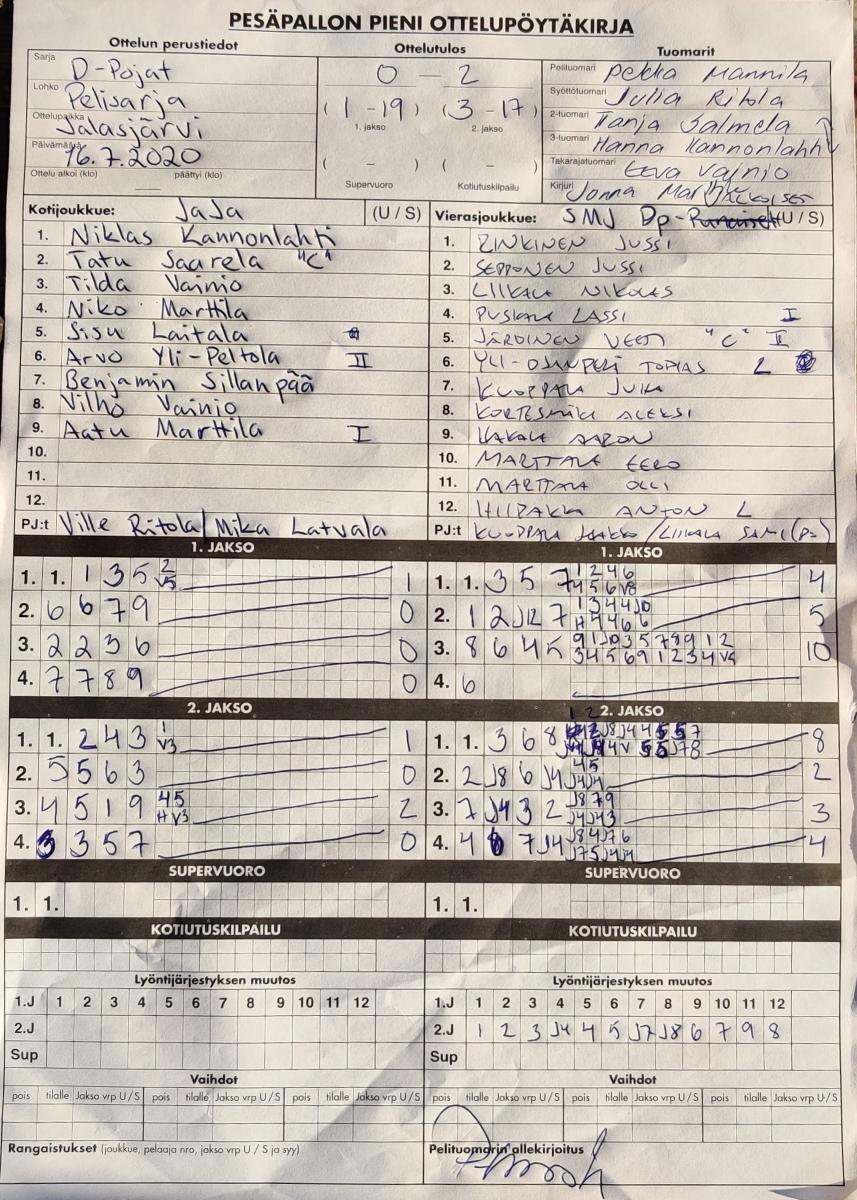 PESÄPALLON PIENI OTTELUPÖYTÄKIRJA
Ottelun perustiedot
Sarja D-Pojat
Lohko Pelisarja
Ottelupaikka Jalasjärvi
Päivämäärä 16.7.2020
Ottelu alkoi (klo) päättyi (klo)
Ottelutulos
0 - 2
(1 - 19) (3 - 17)
1. jakso 2. jakso
( - ) ( - )
Supervuoro Kotiutuskilpailu
Tuomarit
Pelituomari Pekka Mannila
Syöttötuomari Julia Ritola
2-tuomari Tanja Salmela
3-tuomari Hanna Kannonlahti
Takarajatuomari Eeva Vainio
Kirjuri Jonna
Kotijoukkue: JaJa (U / S)
1. Niklas Kannonlahti
2. Tatu Saarela "C"
3. Tilda Vainio
4. Niko Marttila
5. Sisu Laitala
6. Arvo Yli-Peltola II
7. Benjamin Sillanpää
8. Vilho Vainio
9. Aatu Marttila I
10.
11.
12.
PJ:t Ville Ritola / Mika Latvala
Vierasjoukkue: SMJ Dp- (U / S)
1. RINKINEN JUSSI
2. SEPPONEN JUSSI
3. LIIKALA NIKOLAS
4. PUSKALA LASSI I
5. VEETI "C" II
6. TOPIAS L
7. KUOPPALA JUHA
8. ALEKSI
9. AARON
10. MARTTALA EERO
11. MARTTALA OLLI
12. HIIPAKKA ANTON L
PJ:t KUOPPALA JAAKKO / LIIKALA SAMI
1. JAKSO
1. 1. 1 3 5 2 V5 1
2. 6 6 7 9 0
3. 2 2 3 6 0
4. 7 7 8 9 0
1. JAKSO
1. 1. 3 5 7 1 2 4 6 4 5 6 V8 4
2. 1 2 J12 7 1 3 4 4 J10 H 4 4 6 6 5
3. 8 6 4 5 9 1 J10 3 5 7 8 9 1 2 3 4 5 6 9 1 2 3 4 V4 10
4. 6
2. JAKSO
1. 1. 2 4 3 1 V3 1
2. 5 5 6 3 0
3. 4 5 1 9 4 5 H V3 2
4. 3 3 5 7 0
2. JAKSO
1. 1. 3 6 8 8
2. 2 J8 6 J4 4 5 J4 J4 2
3. 7 J4 3 2 J8 7 9 J4 J4 3 3
4. 4 7 J4 J8 4 J7 6 J7 5 J4 J4 4
SUPERVUORO
1. 1.
SUPERVUORO
1. 1.
KOTIUTUSKILPAILU
KOTIUTUSKILPAILU
Lyöntijärjestyksen muutos
1.J 1 2 3 4 5 6 7 8 9 10 11 12
2.J
Sup
Lyöntijärjestyksen muutos
1.J 1 2 3 4 5 6 7 8 9 10 11 12
2.J 1 2 3 J4 4 5 J7 J8 6 7 9 8
Sup
Vaihdot
pois tilalle Jakso vrp U / S pois tilalle Jakso vrp U / S pois tilalle Jakso vrp U / S
Vaihdot
pois tilalle Jakso vrp U / S pois tilalle Jakso vrp U / S pois tilalle Jakso vrp U / S
Rangaistukset (joukkue, pelaaja nro, jakso vrp U / S ja syy)
Pelituomarin allekirjoitus